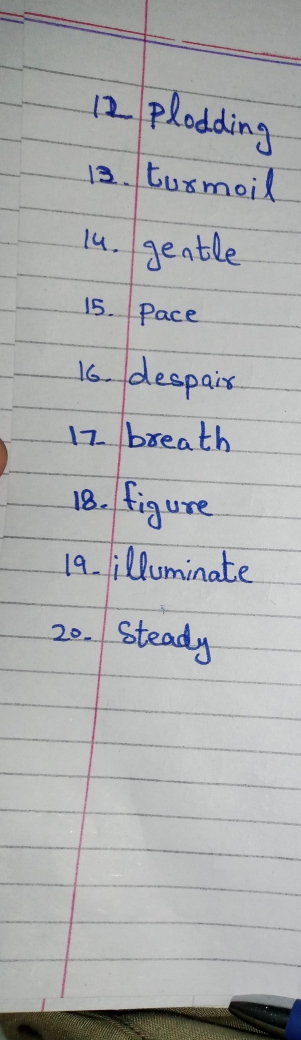 12 plodding
13. turmoil
14. gentle
15. pace
16. despair
17 breath
18. figure
19. illuminate
20. Steady